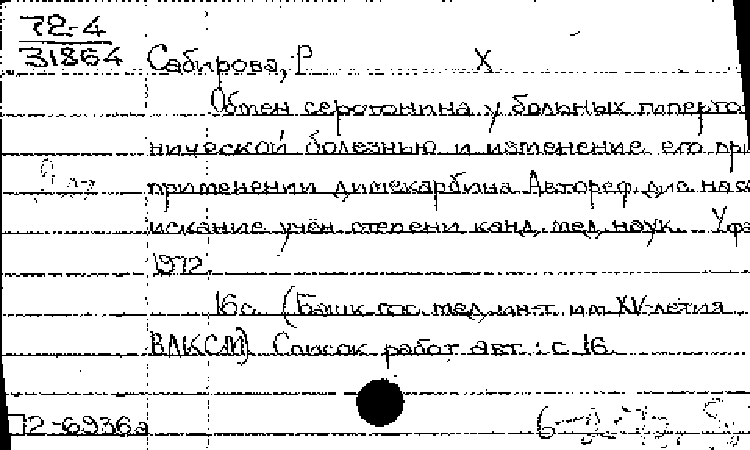 72-4
31864
Сабирова, Р Х
Обмен серотонина у больных гиперто
нической болезнью и изменение его при
применении димекарбина. Автореф. дис. на со
искание учён. степени канд. мед. наук. Уфа
1972.
16с. (Башк. гос. мед. ин-т им. XV-летия
ВЛКСМ). Список работ авт.: с. 16.
72-6936а